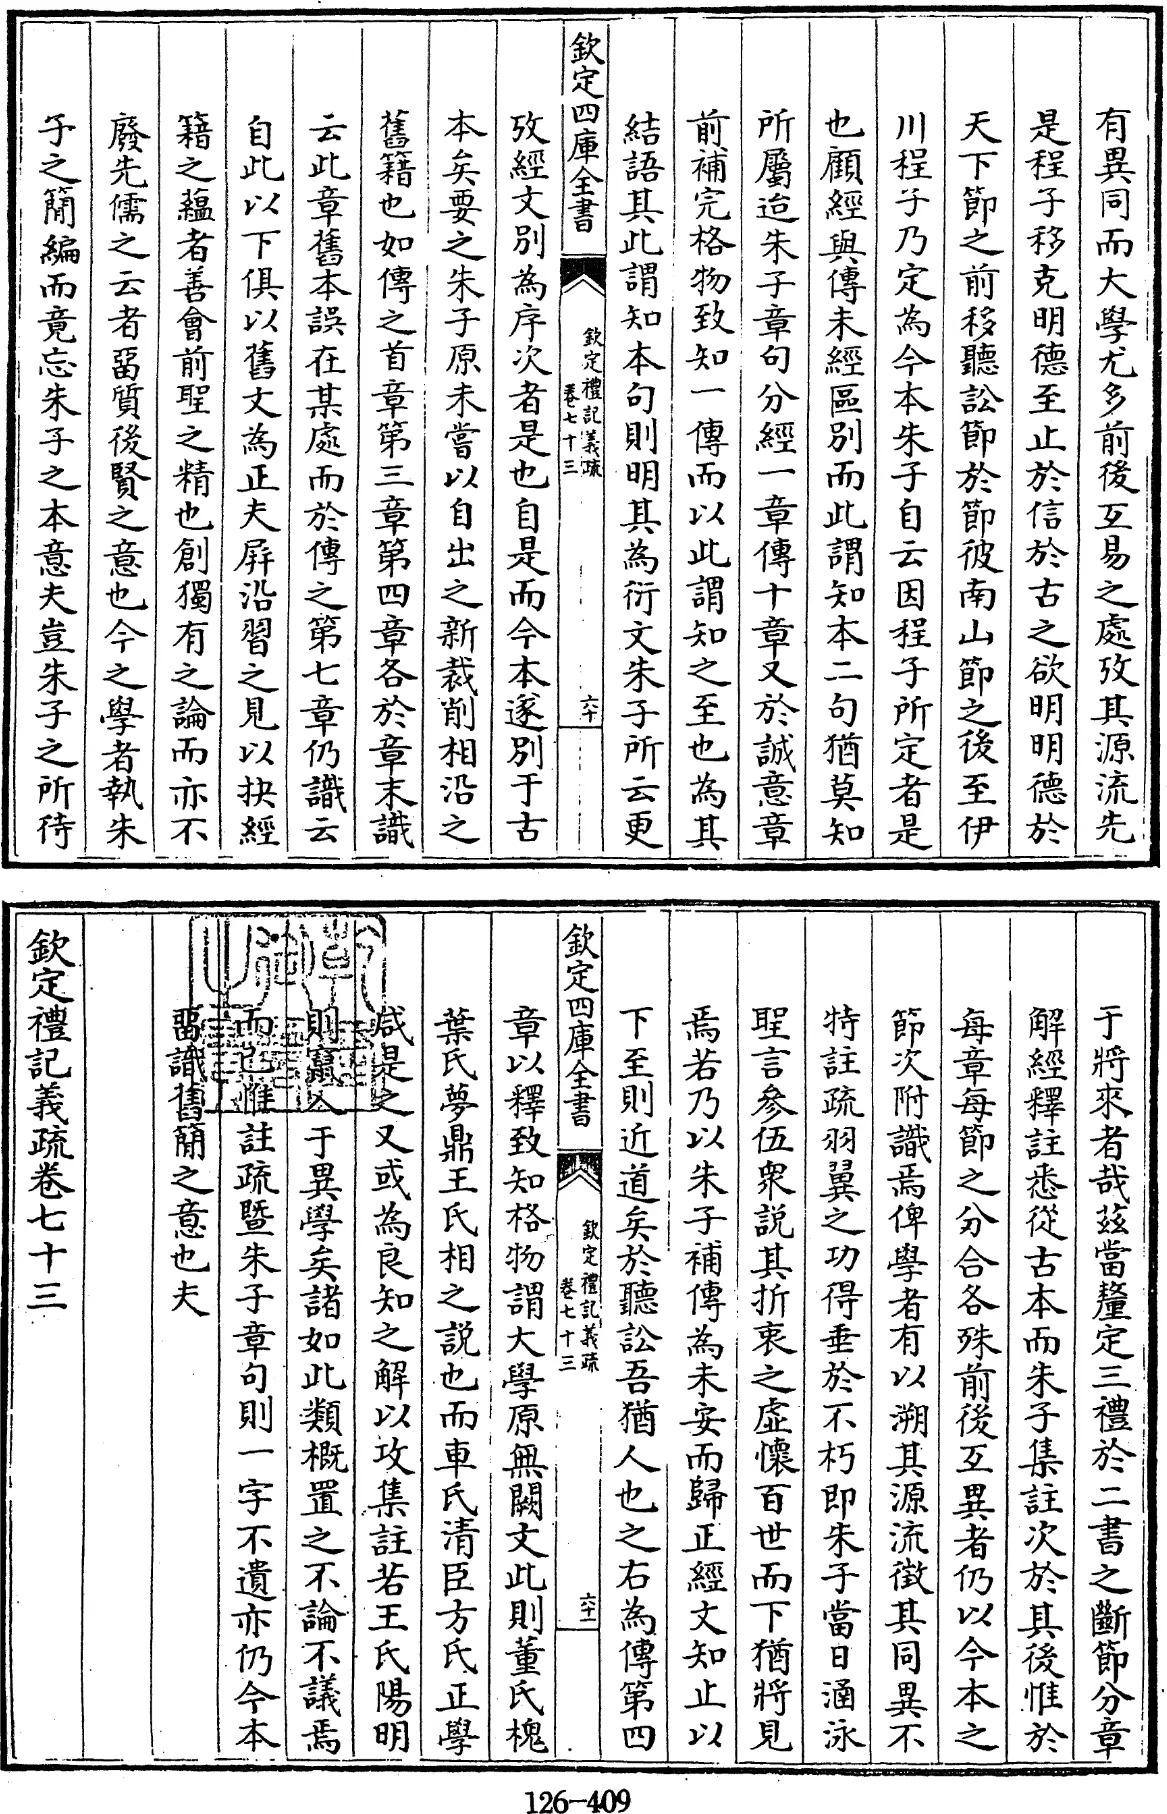 有異同而大學尤多前後互易之處攷其源流先
是程子移克明德至止於信於古之欲明明德於
天下節之前移聽訟節於節彼南山節之後至伊
川程子乃定為今本朱子自云因程子所定者是
也顧經與傳未經區别而此謂知本二句猶莫知
所屬迨朱子章句分經一章傳十章又於誠意章
前補完格物致知一傳而以此謂知之至也為其
結語其此謂知本句則明其為衍文朱子所云更
欽定四庫全書
欽定禮記義疏
卷七十三
六十
攷經文别為序次者是也自是而今本遂别于古
本矣要之朱子原未嘗以自出之新裁削相沿之
舊籍也如傳之首章第三章第四章各於章末識
云此章舊本誤在某處而於傳之第七章仍識云
自此以下俱以舊文為正夫屛沿習之見以抉經
籍之蘊者善會前聖之精也創獨有之論而亦不
廢先儒之云者畱質後賢之意也今之學者執朱
子之簡編而竟忘朱子之本意夫豈朱子之所待
于將來者哉茲當釐定三禮於二書之斷節分章
解經釋註悉從古本而朱子集註次於其後惟於
每章每節之分合各殊前後互異者仍以今本之
節次附識焉俾學者有以溯其源流徴其同異不
特註疏羽翼之功得垂於不朽即朱子當日涵泳
聖言參伍衆說其折衷之虛懷百世而下猶將見
焉若乃以朱子補傳為未安而歸正經文知止以
下至則近道矣於聽訟吾猶人也之右為傳第四
欽定四庫全書
欽定禮記義疏
卷七十三
六十一
章以釋致知格物謂大學原無闕文此則董氏槐
葉氏夢鼎王氏相之説也而車氏清臣方氏正學
咸是之又或為良知之解以攻集註若王氏陽明
則竄入于異學矣諸如此類概置之不論不議焉
而已惟註疏暨朱子章句則一字不遺亦仍今本
畱識舊簡之意也夫
欽定禮記義疏卷七十三
126-409